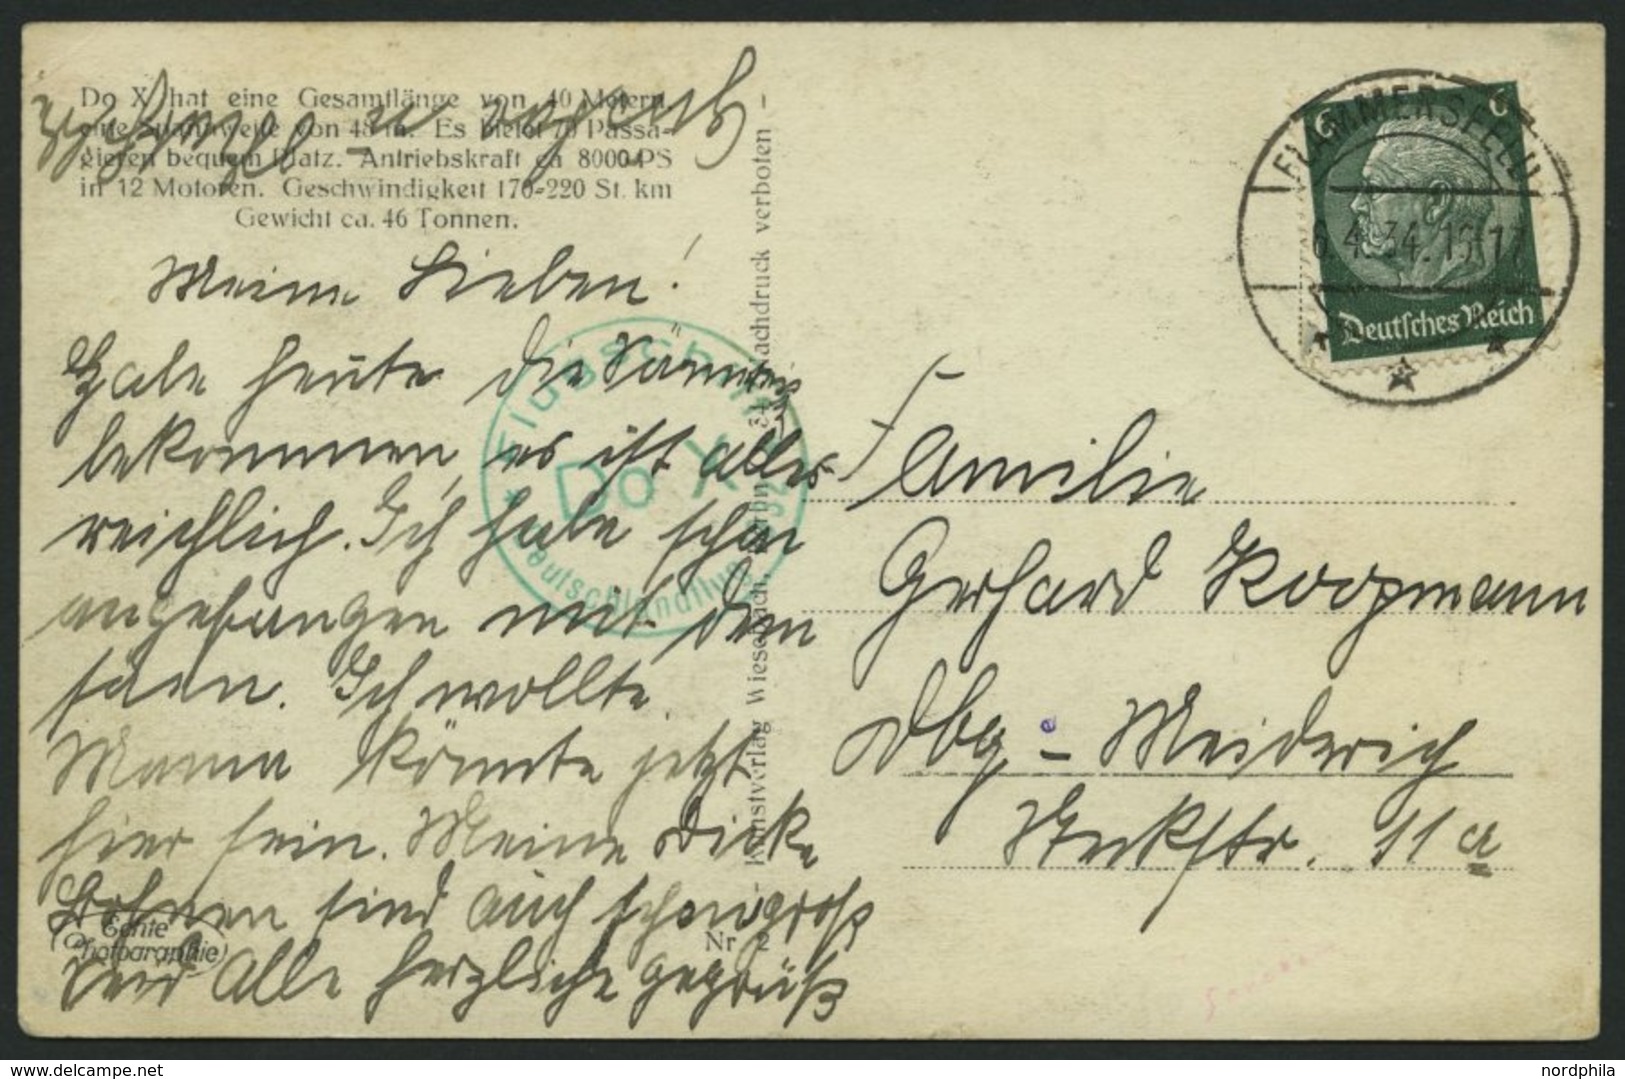 Do X hat eine Gesamtlänge von 40 Metern,
eine Spannweite von 48 m. Es bietet 70 Passa-
gieren bequem Platz. Antriebskraft ca 8000 PS
in 12 Motoren. Geschwindigkeit 170-220 St. km
Gewicht ca. 46 Tonnen.
Meine Lieben!
Habe heute die
bekommen, es ist alles
reichlich. Ich habe schon
angefangen mit dem
säen. Ich wollte
Mama könnte jetzt
hier sein. Meine dicke
Bohnen sind auch schon groß
seid alle herzliche gegrüß
Echte
Photographie
Nr. 2
Kunstverlag Wiese Nachdruck verboten -
Flugschiff
Do X
Deutschlandflug
FLAMMERSFELD
6.4.34.15-17
6 6
Deutsches Reich
Familie
Gerhard Koopmann
Dbg - Meiderich
e
11 a
delcampe.net
nordphila